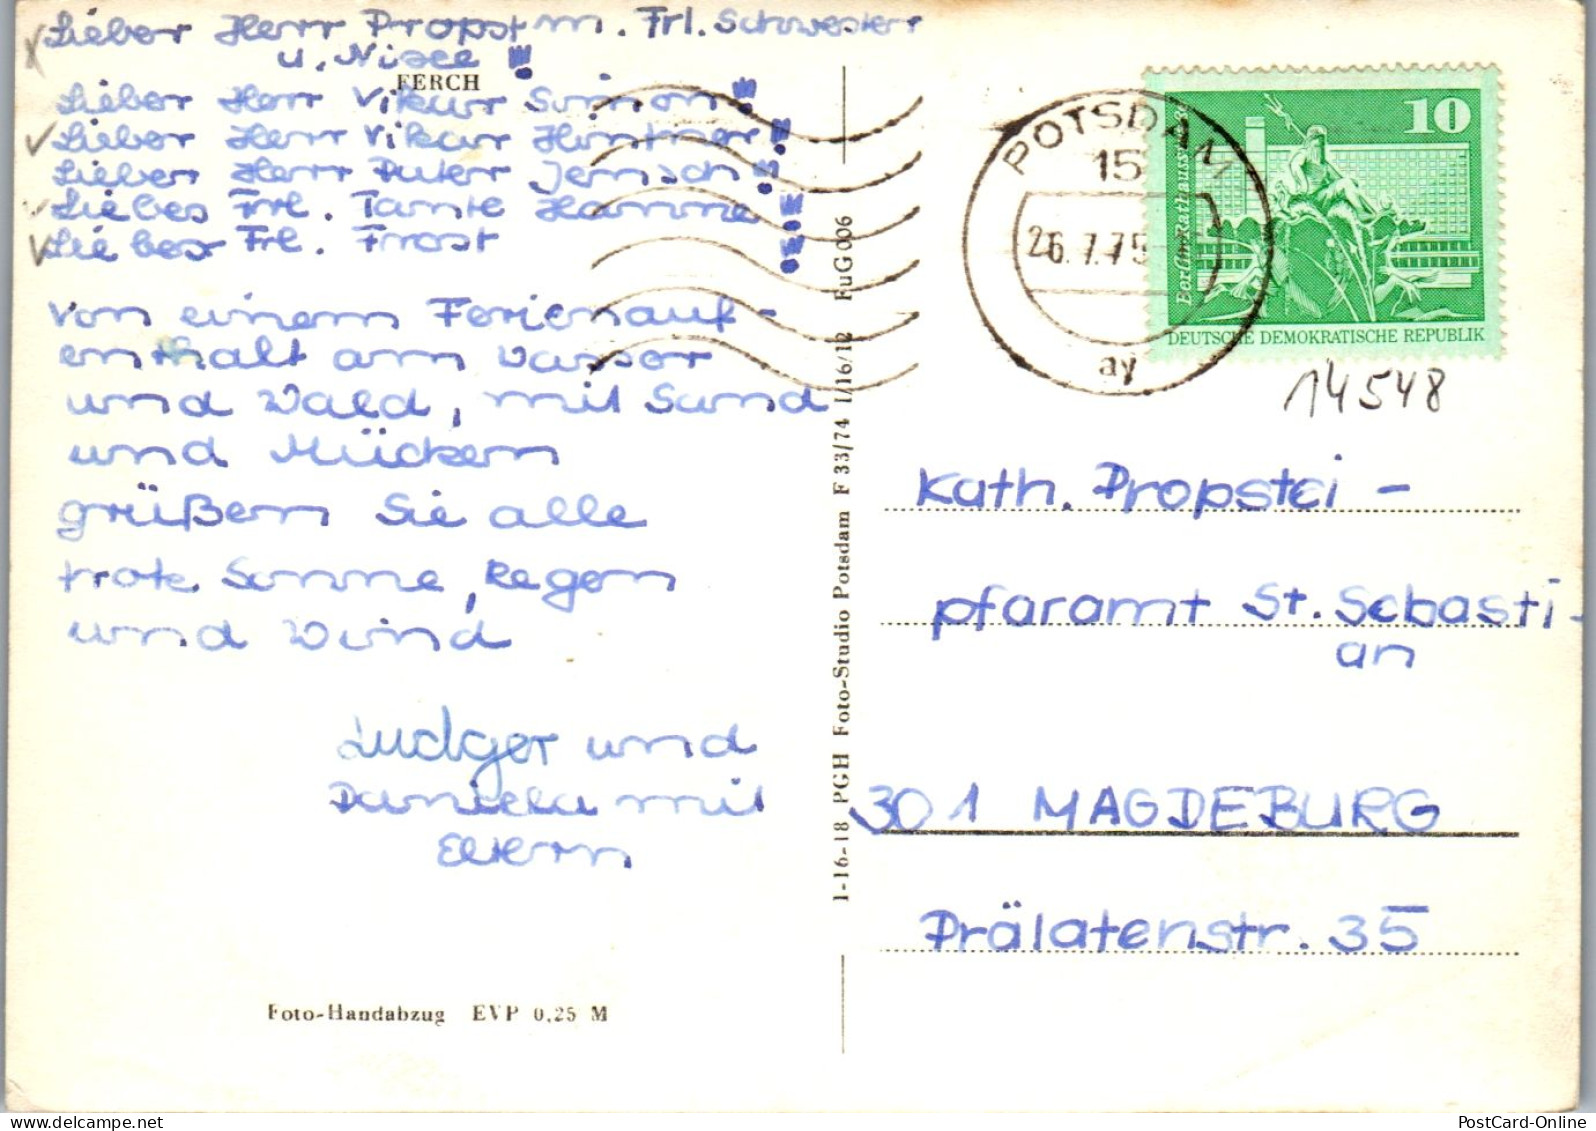 Lieber Herr Propst m. Frl. Schwester
u. Nisee!!!
FERCH
Lieber Herr Vikar Simon!!!
Lieber Herr Vikar Hintner!!!
Lieber Herr Pater Jenisch!!!
Liebes Frl. Tante Hanne!!!
Liebes Frl. Frost!!!
Von einem Ferienauf-
enthalt am Wasser
und Wald, mit Sand
und Mücken
grüßen Sie alle
trotz Sonne, Regen
und Wind
Ludger und
Daniela mit
Eltern
Foto-Handabzug EVP 0,25 M
1-16-18 PGH Foto-Studio Potsdam F 33/74 I/16/12 FuG 006
POTSDAM
15
26.7.75
ay
10
Berlin Rathausstraße
DEUTSCHE DEMOKRATISCHE REPUBLIK
14548
Kath. Propstei-
pfaramt St. Sebasti-
an
301 MAGDEBURG
Prälatenstr. 35
PostCard-Online